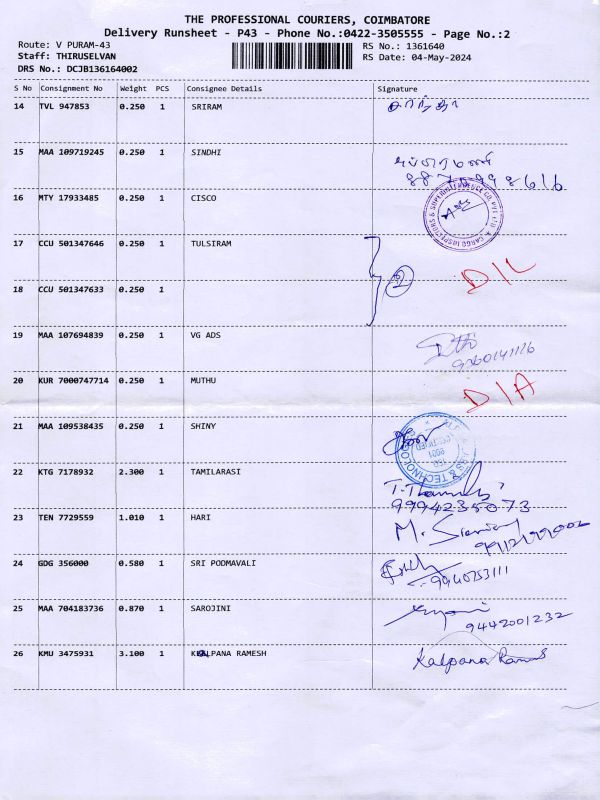 THE PROFESSIONAL COURIERS, COIMBATORE
Delivery Runsheet - P43 - Phone No.:0422-3505555 - Page No.:2
Route: V PURAM-43 RS No.: 1361640
Staff: THIRUSELVAN RS Date: 04-May-2024
DRS No.: DCJB136164002
S No Consignment No Weight PCS Consignee Details Signature
14 TVL 947853 0.250 1 SRIRAM
15 MAA 109719245 0.250 1 SINDHI
16 MTY 17933485 0.250 1 CISCO
17 CCU 501347646 0.250 1 TULSIRAM
2 D/L
18 CCU 501347633 0.250 1
19 MAA 107694839 0.250 1 VG ADS
20 KUR 7000747714 0.250 1 MUTHU D/A
21 MAA 109538435 0.250 1 SHINY
22 KTG 7178932 2.300 1 TAMILARASI
9994235073
23 TEN 7729559 1.010 1 HARI
24 GDG 356000 0.580 1 SRI PODMAVALI
9940253111
25 MAA 704183736 0.870 1 SAROJINI
9442001232
26 KMU 3475931 3.100 1 KALPANA RAMESH Kalpana